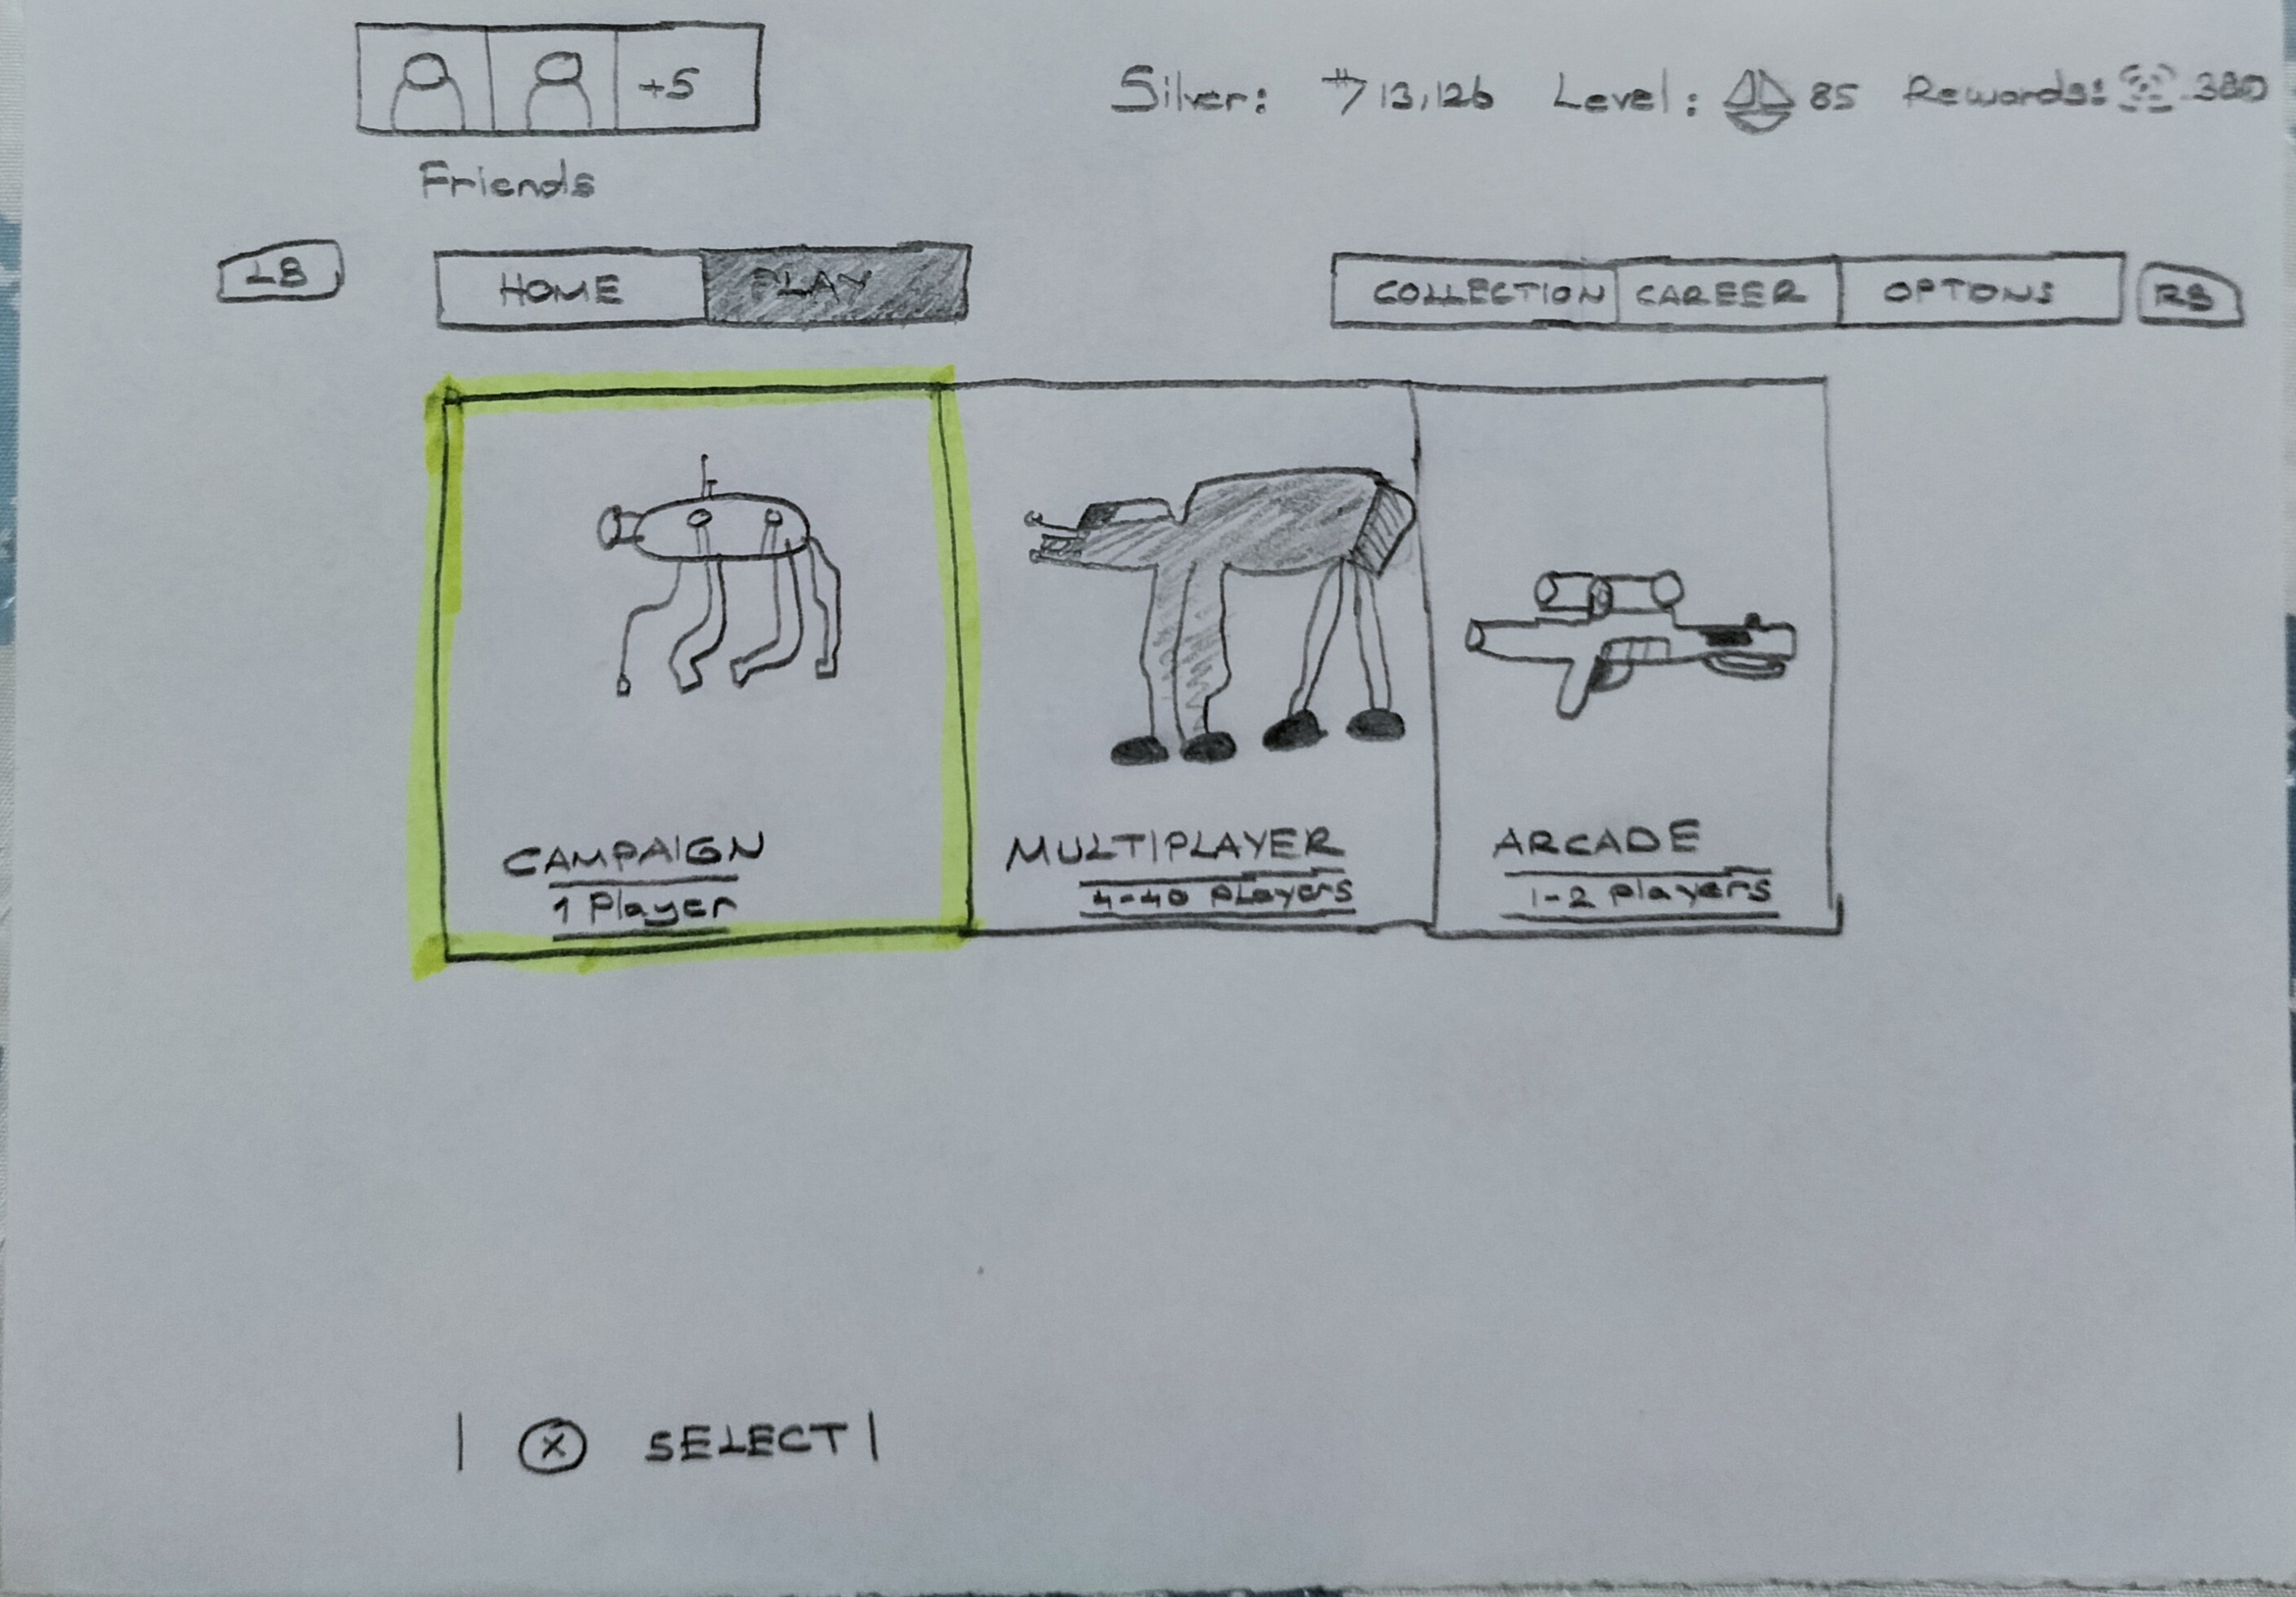 +5
Silver: 13,126 Level: 85 Rewards: 380
Friends
LB HOME PLAY COLLECTION CAREER OPTIONS RB
CAMPAIGN
1 Player
MULTIPLAYER
4-40 Players
ARCADE
1-2 players
X SELECT